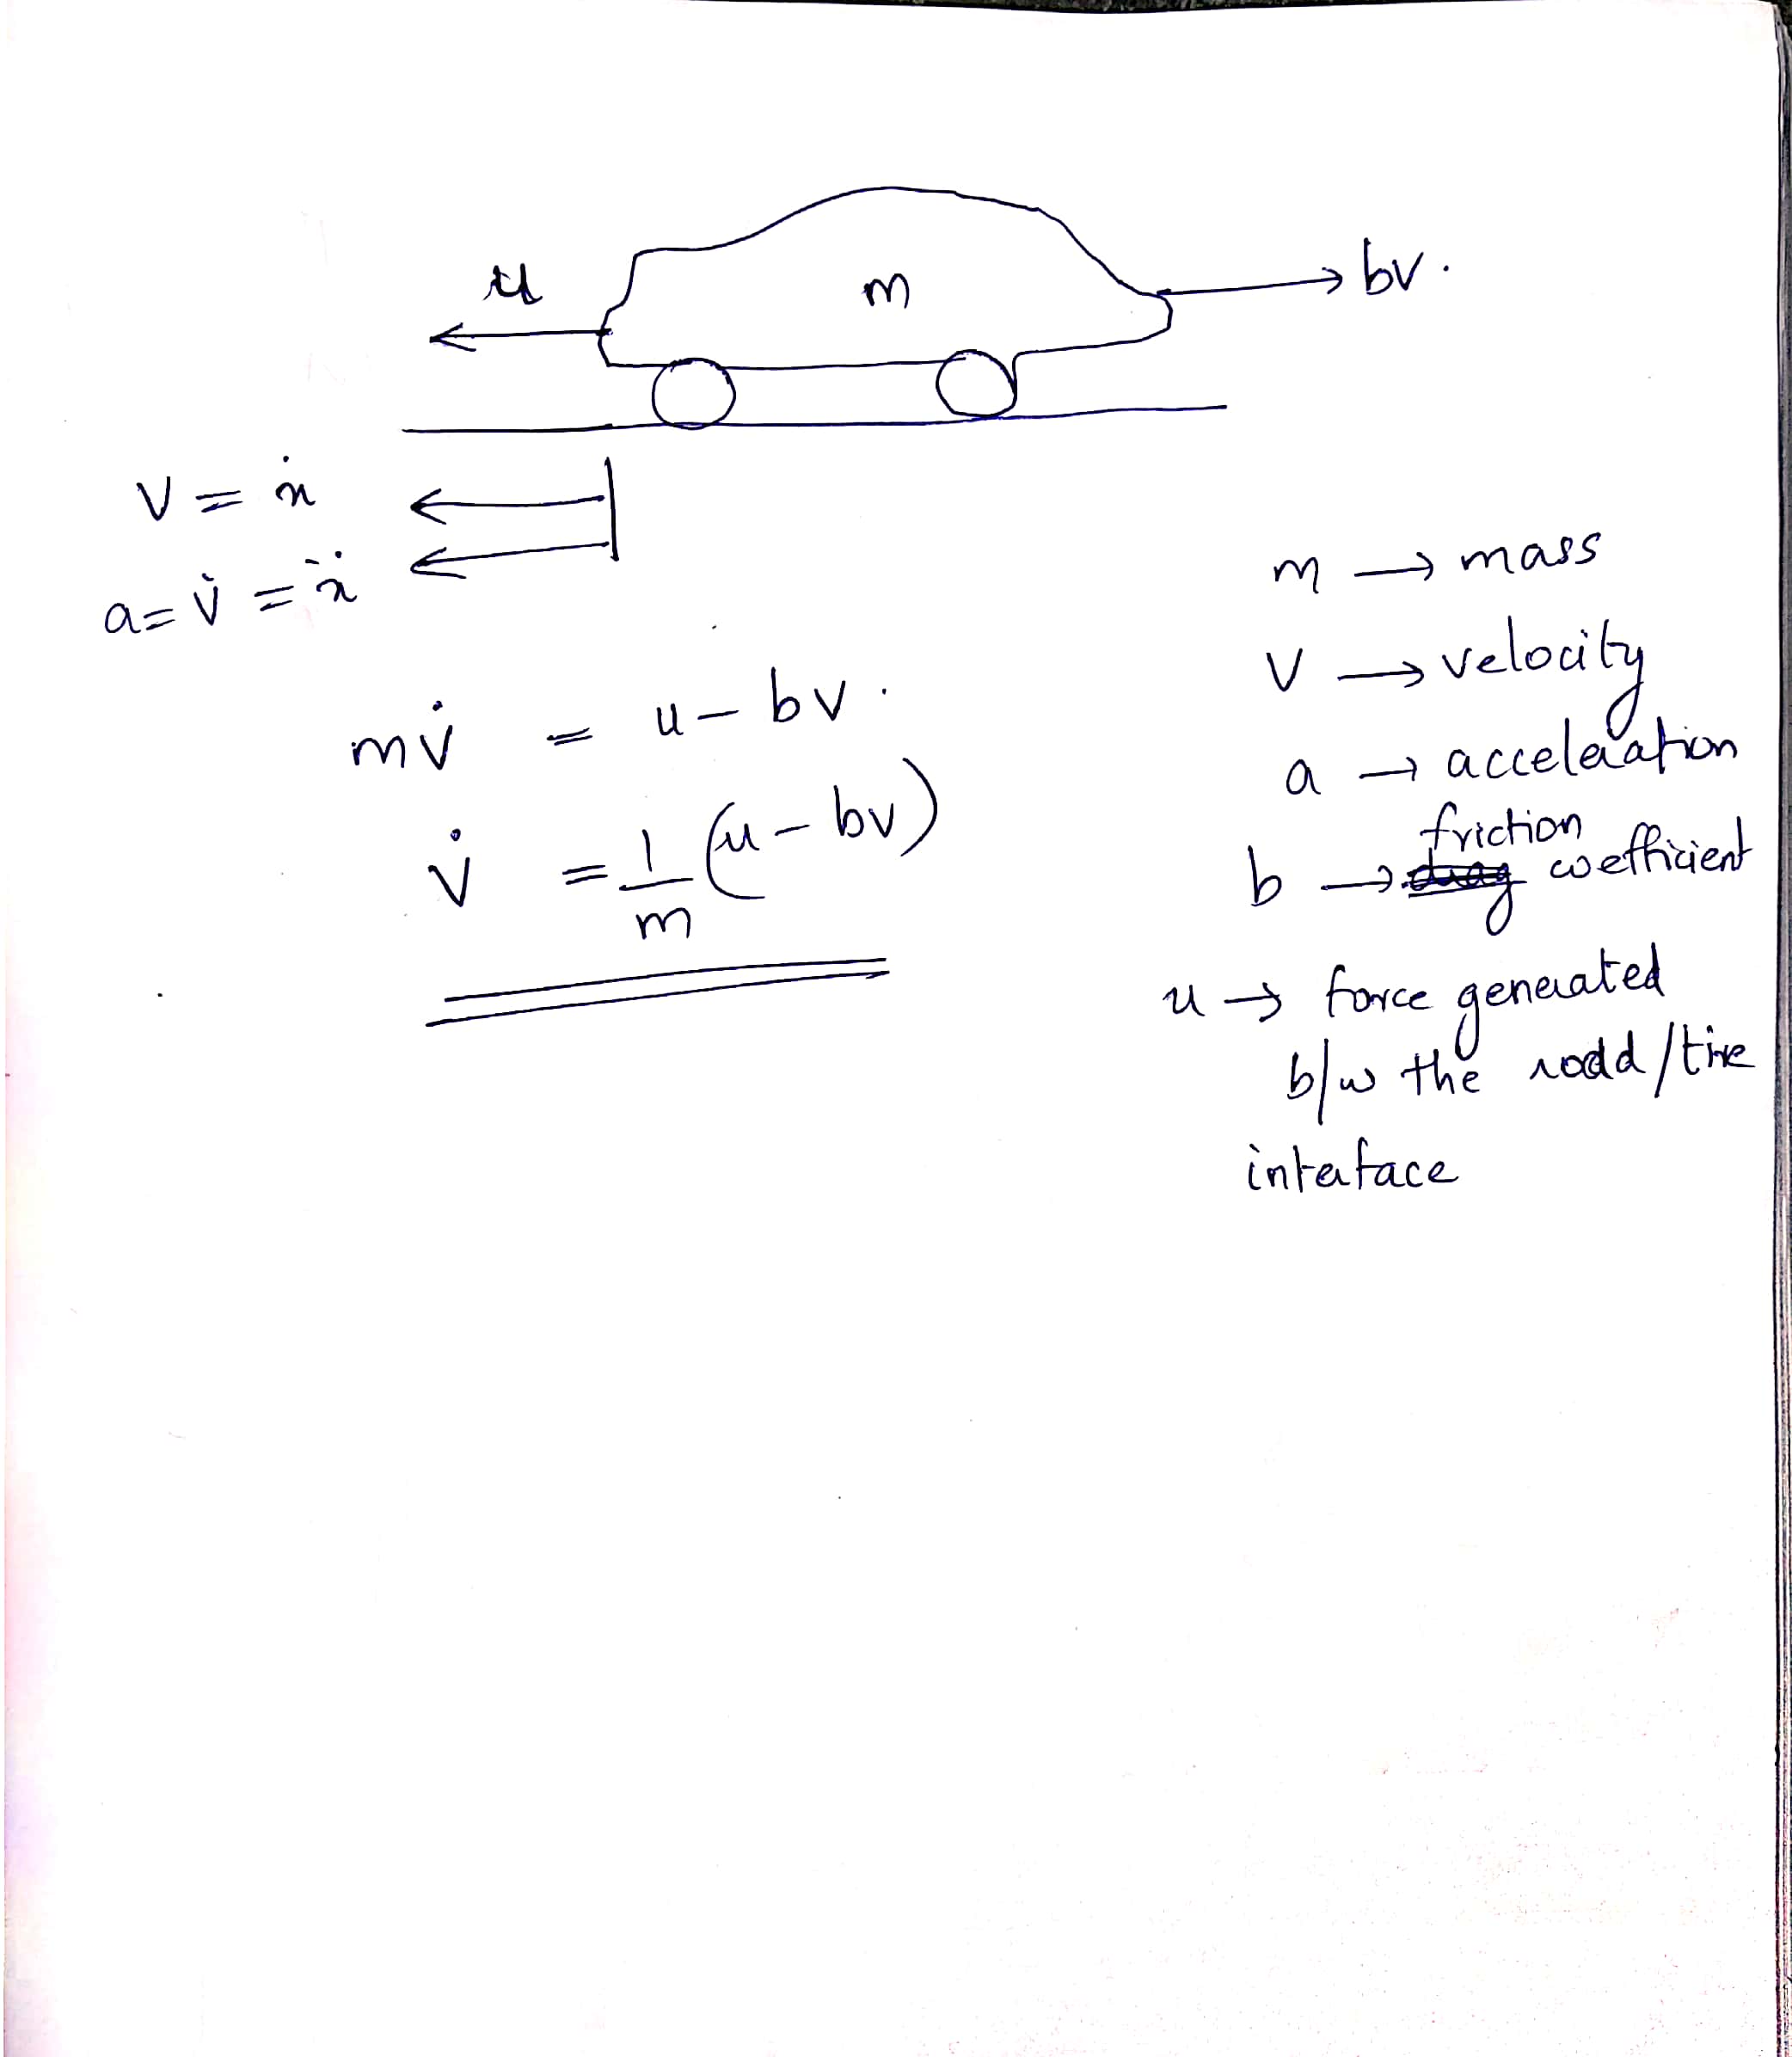 u
m
bv.
v = ẋ
a = v̇ = ẍ
mv̇ = u - bv.
v̇ = 1/m (u - bv)
m → mass
v → velocity
a → acceleration
friction
b → coefficient
u → force generated
b/w the road/tire
interface